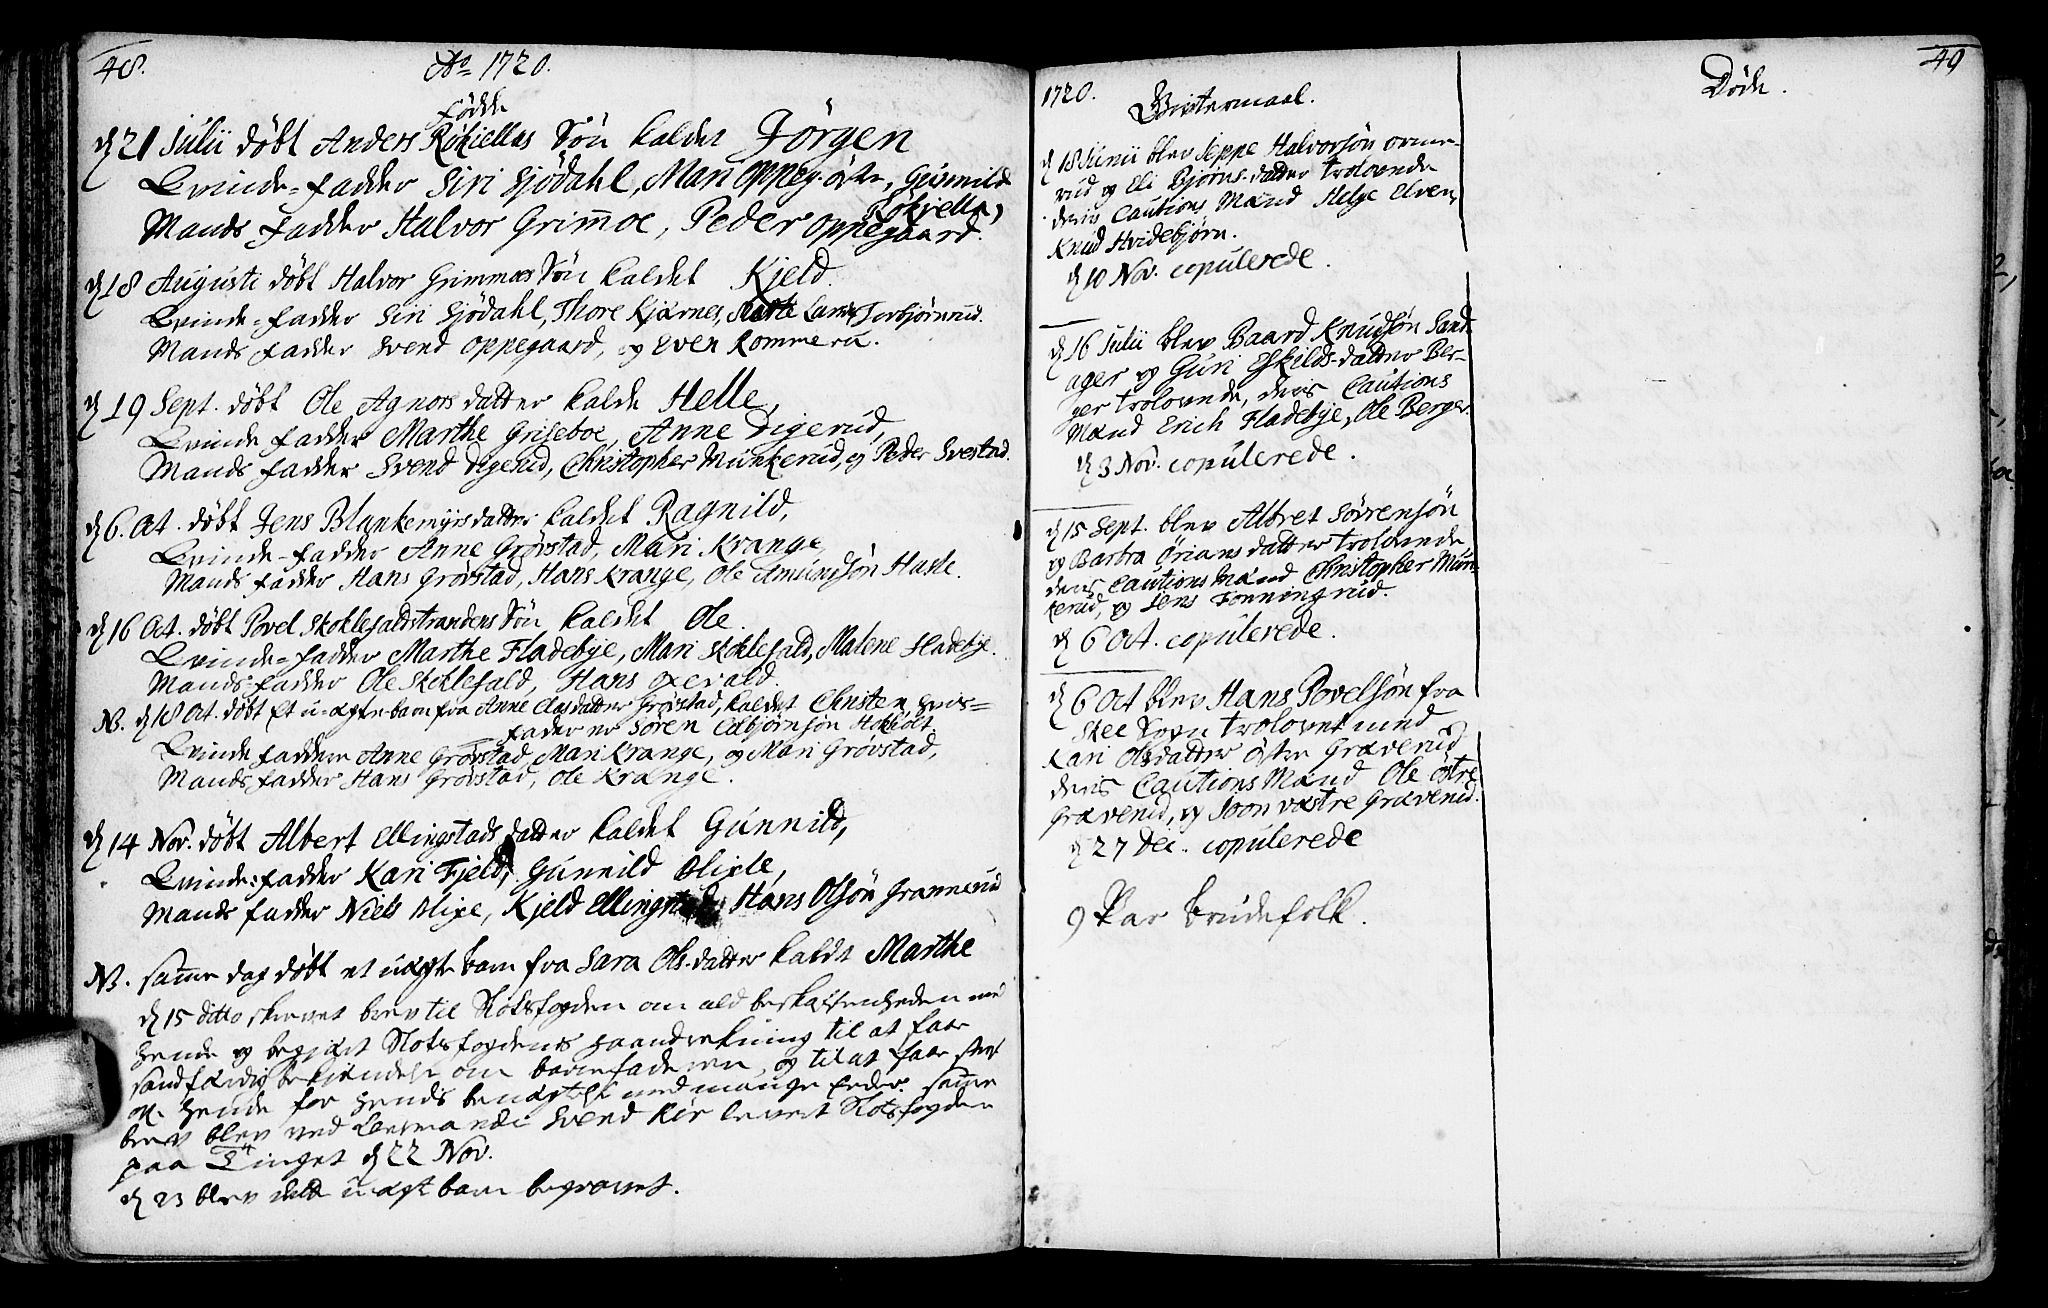 48.
Ao 1720.
Fødde
d 21 Julii døbt Anders Rökiellas Sön kaldet Jörgen
Qvinde-fadder Siri Sjödahl, Mari Oppeg-östre, Gunnild Rökiella,
Mands Fadder Halvor Grimoe, Peder Oppegaard.
d 18 Augusti döbt Halvor Grimmoes Sön kaldet Kjeld.
Qvinde-fadder Siri Sjödahl, Thore Kjærnes, Marthe Torbjörnrud.
Mands Fadder Svend Oppegaard, og Even Kommeru.
d 19 Sept. döbt Ole Agnors datter kaldt Helle,
Qvinde fadder Marthe Griseboe, Anne Digerud,
Mands fadder Svend Digerud, Christopher Munkerud, og Peder Svestad.
d 6. Oct. döbt Jens Blankemyrs datter kaldet Ragnild,
Qvinde-fadder Anne Grövstad, Mari Krange,
Mands fadder Hans Grövstad, Hans Krange, Ole Amundsön Hasle.
d 16 Oct. döbt Povel Skoklefaldstrandens Sön kaldet Ole.
Qvinde-fadder Marthe Fladebye, Mari Skoklefald, Malene Fladebye.
Mands-fadder Ole Skoklefald, Hans Oxevald.
NB. d 18 Oct. döbt et u-ægte barn fra Anne Clasdatter Grövstad, kaldet Christen, hvis-
fader er Sören Esbjörnsön Hokholt
Qvinde faddere Anne Grövstad, Mari Krange, og Mari Grövstad,
Mands fadder Hans Grövstad, Ole Krange.
d 14 Nov. döbt Albert Ellingstads datter kaldet Gunnild,
Qvinde-fadder Kari Fjeld, Gunnild Blixle,
Mands fadder Niels Blixe, Kjeld Ellingstad, Hans Olsön Grannerud
NB. same dag döbt et uægte barn fra Sara Ols-datter kaldt Marthe
d 15 ditto skrevet brev til Slotsfogden om ald beskaffenheden med
hende og begjært Slotsfogdens haandrekning til at faae
sandfærdig bekjendelse om barnefaderen, og til at faae straf
hende for hends benægtelse med mange eeder. same
brev blev ved Svend leveret Slotsfogden
paa Tinget d 22 Nov.
d 23 blev dette uægte barn begravet.
1720.
Gistermaal.
d 18 Junii blev Jeppe Halvorsön orme-
rud og Eli Bjørns-datter trolovede
deris Cautions Mænd Helge Elven,
Knud Hvidebjörn.
d 10 Nov. copulerede.
d 16 Julii blev Baard Knudsön Sand-
ager og Guri Eskilds-datter Ber-
ger trolovede, deris Cautions
Mænd Erich Fladebye, Ole Berger.
d 3 Nov. copulerede.
d 15 Sept. blev Albret Sörrensön
og Barbra Örians datter trolovede
deris Cautions Mænd Christopher Mun-
kerud, og Jens Fonningrud.
d 6 Oct. copulerede.
d 6 Oct blev Hans Povelsön fra
Skee Sogn trolovet med
Kari Olsdatter östre Græverud
deris Cautions Mænd Ole östre
Græverud, og Joon væstre Græverud.
d 27 Dec. copulerede
9 Par brudefolk.
49
Döde.